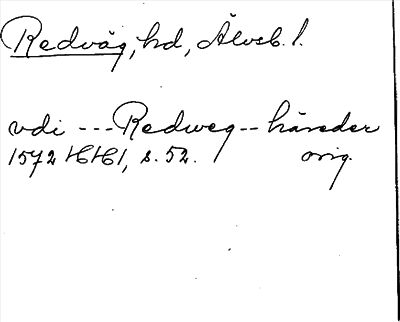 Redväg, hd, Älvsb. l.
vdi --- Redweg -- häreder
1572 HH1, s. 52. orig.